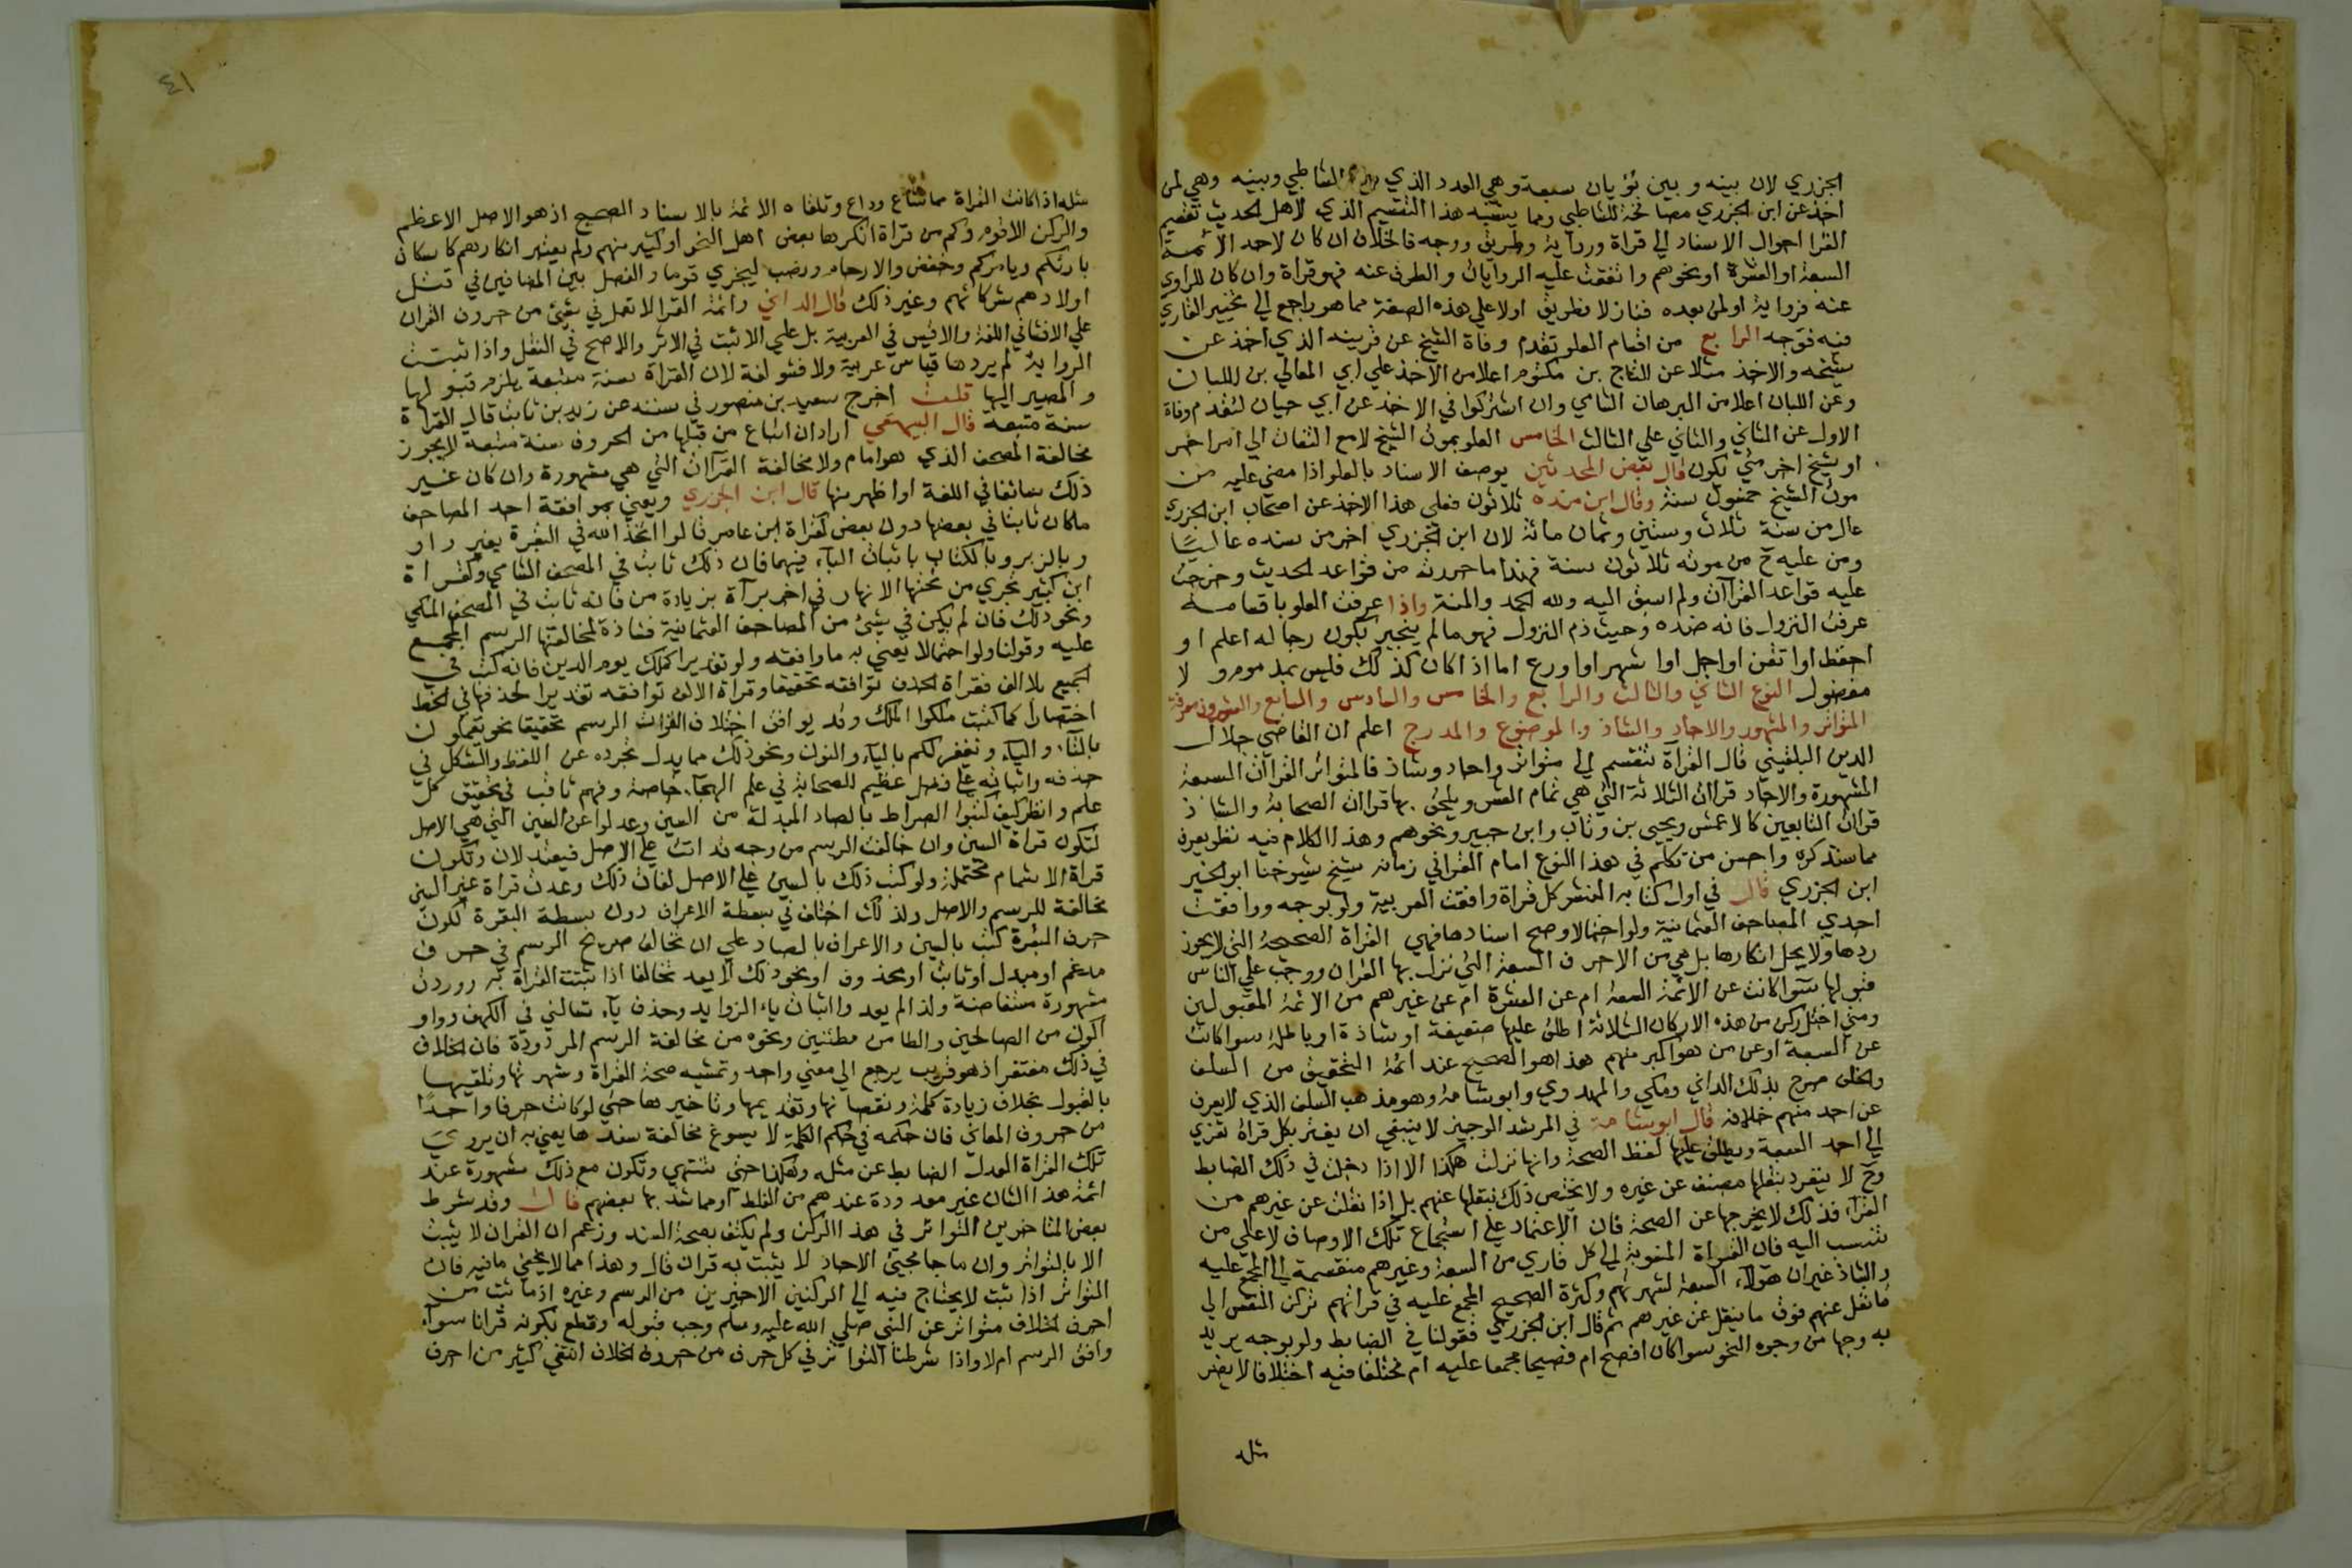 الجزري لان بينه وبين نؤيان سبعة وهي العدد الذي بين الشاطبي وبينه وهي لمن
اخذ عن ابن الجزري مصافحة للشاطبي ومما يشبه هذا التقسيم الذي لاهل الحديث تقسيم
القرا احوال الاسناد الي قراة ورواية وطريق ووجه فالخلاف ان كان لاحد الائمة
السبعة او العشرة او نحوهم واتفقت عليه الروايات والطرق عنه فهو قراة وان كان للراوي
عنه فرواية او لمن بعده فنازلا فطريق اولا علي هذه الصفة مما هو راجع الي تخيير القاري
فيه فوجه الرابع من اقسام العلو تقدم وفاة الشيخ عن قرينه الذي اخذ عن
شيخه والاخذ مثلا عن التاج بن مكتوم اعلا من الاخذ علي ابي المعالي بن اللبان
وعن اللبان اعلا من البرهان الشامي وان اشتركوا في الاخذ عن ابي حيان لتقدم وفاة
الاول عن الثاني والثاني علي الثالث الخامس العلو بموت الشيخ لا مع التفات الي امر اخر
او شيخ اخر متي يكون قال بعض المحدثين يوصف الاسناد بالعلو اذا مضي عليه من
موت الشيخ خمسون سنة وقال ابن منده ثلاثون فعلي هذا الاخذ عن اصحاب ابن الجزري
عال من سنة ثلاث وستين وثمان مائة لان ابن الجزري اخر من سنده عاليا
ومن عليه ح من موته ثلاثون سنة فهذا ما حررته من قواعد الحديث وخرجت
عليه قواعد القراآت ولم اسبق اليه ولله الحمد والمنة واذا عرفت العلو باقسامه
عرفت النزول فانه ضده وحيث ذم النزول فهو مالم ينجبر بكون رجاله اعلم او
احفظ او اتقن او اجل او اشهر او اورع اما اذا كان كذلك فليس بمذموم ولا
مفضول النوع الثاني والثالث والرابع والخامس والسادس والسابع والعشرون معرفة
المتواتر والمشهور والاحاد والشاذ والموضوع والمدرج اعلم ان القاضي جلال
الدين البلقيني قال القراة تنقسم الي متواتر واحاد وشاذ فالمتواتر القراآت السبعة
المشهورة والاحاد قراات الثلاثة التي هي تمام العشر ويلحق بها قراات الصحابة والشاذ
قراات التابعين كالاعمش ويحيي بن وثاب وابن جبير ونحوهم وهذا الكلام فيه نظر يعرف
مما سنذكره واحسن من تكلم في هذا النوع امام القرا في زمانه شيخ شيوخنا ابو الخير
ابن الجزري قال في اول كتابه النشر كل قراة وافقت العربية ولو بوجه ووافقت
احدي المصاحف العثمانية ولو احتمالا وصح اسنادها فهي القراة الصحيحة التي لا يجوز
ردها ولا يحل انكارها بل هي من الاحرف السبعة التي نزل بها القران ووجب علي الناس
قبولها سوا كانت عن الائمة السبعة ام عن العشرة ام عن غيرهم من الائمة المقبولين
ومتي اختل ركن من هذه الاركان الثلاثة اطلق عليها ضعيفة او شاذة او باطلة سوا كانت
عن السبعة او عن من هو اكبر منهم هذا هو الصحيح عند ائمة التحقيق من السلف
والخلف صرح بذلك الداني ومكي والمهدوي وابو شامة وهو مذهب السلف الذي لا يعرف
عن احد منهم خلافه قال ابو شامة في المرشد الوجيز لا ينبغي ان يغتر بكل قراة تعزي
الي احد السبعة ويطلق عليها لفظ الصحة وانها نزلت هكذا الا اذا دخلت في ذلك الضابط
وح لا يتفرد بنقلها مصنف عن غيره ولا يختص ذلك بنقلها عنهم بل اذا نقلت عن غيرهم من
القراء فذلك لا يخرجها عن الصحة فان الاعتماد علي استجماع تلك الاوصاف لا علي من
تنسب اليه فان القراة المنسوبة الي كل قاري من السبعة وغيرهم منقسمة الي المجمع عليه
والشاذ غير ان هؤلاء السبعة لشهرتهم وكثرة الصحيح المجمع عليه في قراتهم تركن النفس الي
ما نقل عنهم فوق ما ينقل عن غيرهم ثم قال ابن الجزري فقولنا في الضابط ولو بوجه يريد
به وجها من وجوه النحو سوا كان افصح ام فصيحا مجمعا عليه ام مختلفا فيه اختلافا لا يضر
مثله
٤١
مثله اذا كانت القراة مما شاع وذاع وتلقاه الائمة بالاسناد الصحيح اذ هو الاصل الاعظم
والركن الاقوم وكم من قراة انكرها بعض اهل النحو او كثير منهم ولم يعتبر انكارهم كاسكان
بارئكم ويامركم وخفض والارحام ونصب ليجزي قوما والفصل بين المضافين في قتل
اولادهم شركائهم وغير ذلك قال الداني وائمة القرا لا تعمل في شيئ من حروف القران
علي الافشا في اللغة والاقيس في العربية بل علي الاثبت في الاثر والاصح في النقل واذا ثبتت
الرواية لم يردها قياس عربية ولا فشو لغة لان القراة سنة متبعة يلزم قبولها
والمصير اليها قلت اخرج سعيد بن منصور في سننه عن زيد بن ثابت قال القراة
سنة متبعة قال البيهقي اراد ان اتباع من قبلنا من الحروف سنة متبعة لا يجوز
مخالفة المصحف الذي هو امام ولا مخالفة القراآت التي هي مشهورة وان كان غير
ذلك سائغا في اللغة او اظهر منها قال ابن الجزري ونعني بموافقة احد المصاحف
ماكان ثابتا في بعضها دون بعض كقراة ابن عامر قالوا اتخذ الله في البقرة بغير واو
وبالزبر وبالكتاب باثبات الباء فيهما فان ذلك ثابت في المصحف الشامي وكقراة
ابن كثير تجري من تحتها الانهار في اخر براة بزيادة من فانه ثابت في المصحف المكي
ونحو ذلك فان لم يكن في شيئ من المصاحف العثمانية فشاذة لمخالفتها الرسم المجمع
عليه وقولنا ولو احتمالا نعني به ما وافقه ولو تقديرا كملك يوم الدين فانه كتب في
الجميع بلا الف فقراة الحذف توافقه تحقيقا وقراة الالف توافقه تقديرا لحذفها في الخط
اختصارا كما كتبت ملكوا الملك وقد يوافق اختلاف القرات الرسم تحقيقا نحو تعملون
بالتاء والياء ونغفر لكم بالياء والنون ونحو ذلك مما يدل تجرده عن النقط والشكل في
حذفه واثباته علي فضل عظيم للصحابة في علم الهجاء خاصة وفهم ثاقب في تحقيق كل
علم وانظر كيف كتبوا الصراط بالصاد المبدلة من السين وعدلوا عن السين التي هي الاصل
لتكون قراة السين وان خالفت الرسم من وجه قد اتت علي الاصل فيعتدلان وتكون
قراة الاشمام محتملة ولو كتب ذلك بالسين علي الاصل لفات ذلك وعدت قراة غير السين
مخالفة للرسم والاصل ولذلك اختلف في بسطة الاعراف دون بسطة البقرة لكون
حرف البقرة كتب بالسين والاعراف بالصاد علي ان مخالف صريح الرسم في حرف
مدغم او مبدل او ثابت او محذوف او نحو ذلك لا يعد مخالفا اذا ثبتت القراة به ووردت
مشهورة مستفاضة ولذا لم يعدوا اثبات ياء الزوايد وحذف ياء تسالني في الكهف وواو
اكون من الصالحين والظا من بظنين ونحوه من مخالفة الرسم المردودة فان الخلاف
في ذلك مغتفر اذ هو قريب يرجع الي معني واحد وتمشيه صحة القراة وشهرتها وتلقيها
بالقبول بخلاف زيادة كلمة ونقصانها وتقديمها وتاخيرها حتي لو كانت حرفا واحدا
من حروف المعاني فان حكمه في حكم الكلمة لا يسوغ مخالفة سندها يعني به ان يروي
تلك القراة العدل الضابط عن مثله وهكذا حتي تنتهي وتكون مع ذلك مشهورة عند
ائمة هذا الشان غير معدودة عندهم من الغلط او مما شذ بها بعضهم قال وقد شرط
بعض المتاخرين التواتر في هذا الركن ولم يكتف بصحة السند وزعم ان القران لا يثبت
الا بالتواتر وان ما جا مجيئ الاحاد لا يثبت به قران قال وهذا مما لا يخفي ما فيه فان
المتواتر اذا ثبت لا يحتاج فيه الي الركنين الاخيرين من الرسم وغيره اذ ما ثبت من
احرف الخلاف متواتر عن النبي صلي الله عليه وسلم وجب قبوله وقطع بكونه قرانا سواء
وافق الرسم ام لا واذا شرطنا التواتر في كل حرف من حروف الخلاف انتفي كثير من احرف